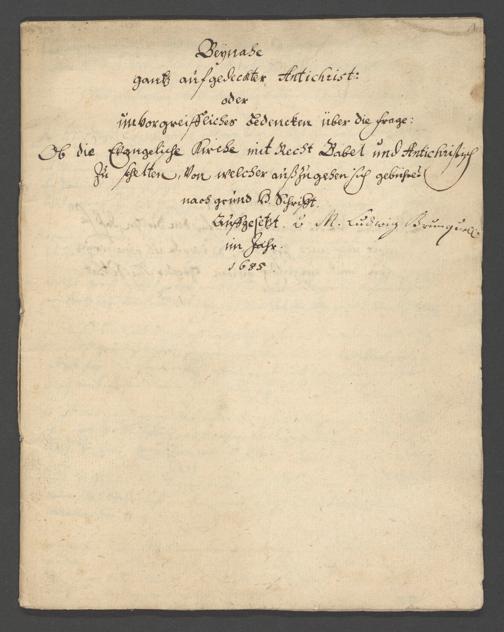 Beynahe
gantz aufgedeckter Antichrist:
oder
unvorgreiffliches Bedencken über die frage:
Ob die Evangeliche Kirche mit Recht Babel und Antichristisch
zu schelten, von welcher außzugehen sich gebühre?
nach grund H. Schrifft.
Auffgesetzt v M. Ludwig Brunquell.
im Jahr.
1685